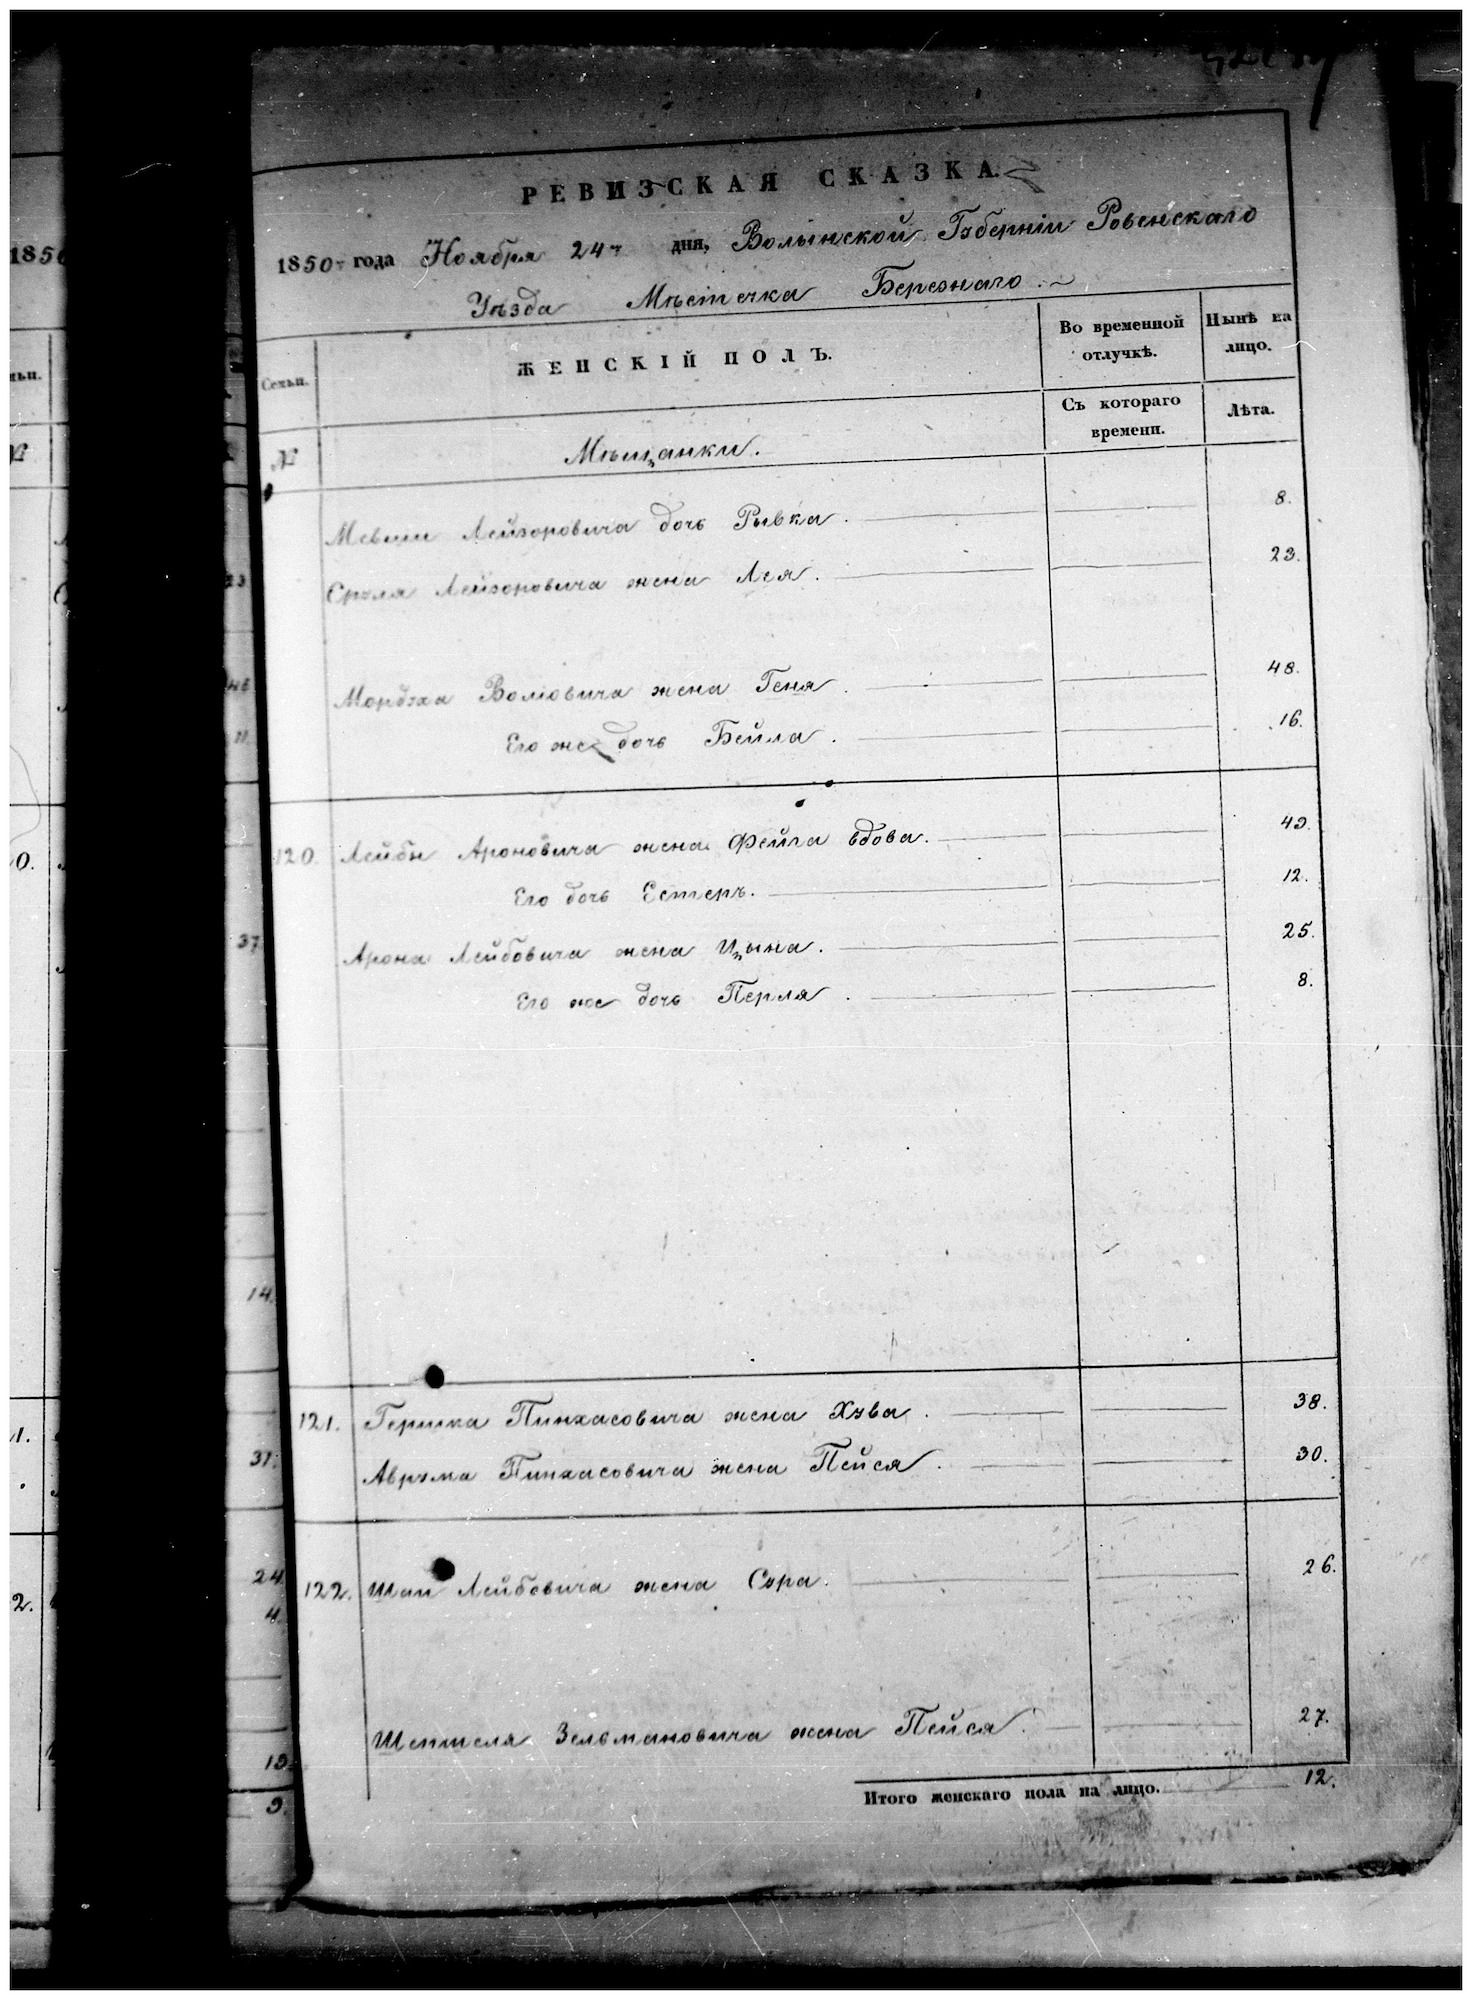 РЕВИЗСКАЯ СКАЗКА.
1850 года Ноября 24 дня, Волынской Губерніи Ровенскаго
Уѣзда Мѣстечка Березнаго
1850
Семьи. ЖЕНСКІЙ ПОЛЪ. Во временной отлучкѣ. Нынѣ на лицо.
№ Мѣщанки. Съ котораго времени. Лѣта.
Лейзоровича дочь Рывка. 8.
Сруля Лейзоровича жена Лея. 23.
Мордха Волковича жена Геня. 48.
Его же дочь Бейла. 16.
120. Лейбы Ароновича жена Фейга вдова. 49.
Его дочь Естеръ. 12.
Арона Лейбовича жена Цына. 25.
Его же дочь Перля. 8.
121. Гершка Пинхасовича жена Хува. 38.
Аврума Пинхасовича жена Пейся. 30.
122. Шаи Лейбовича жена Сура. 26.
Шептеля Зельмановича жена Пейся. 27.
Итого женскаго пола на лицо. 12.